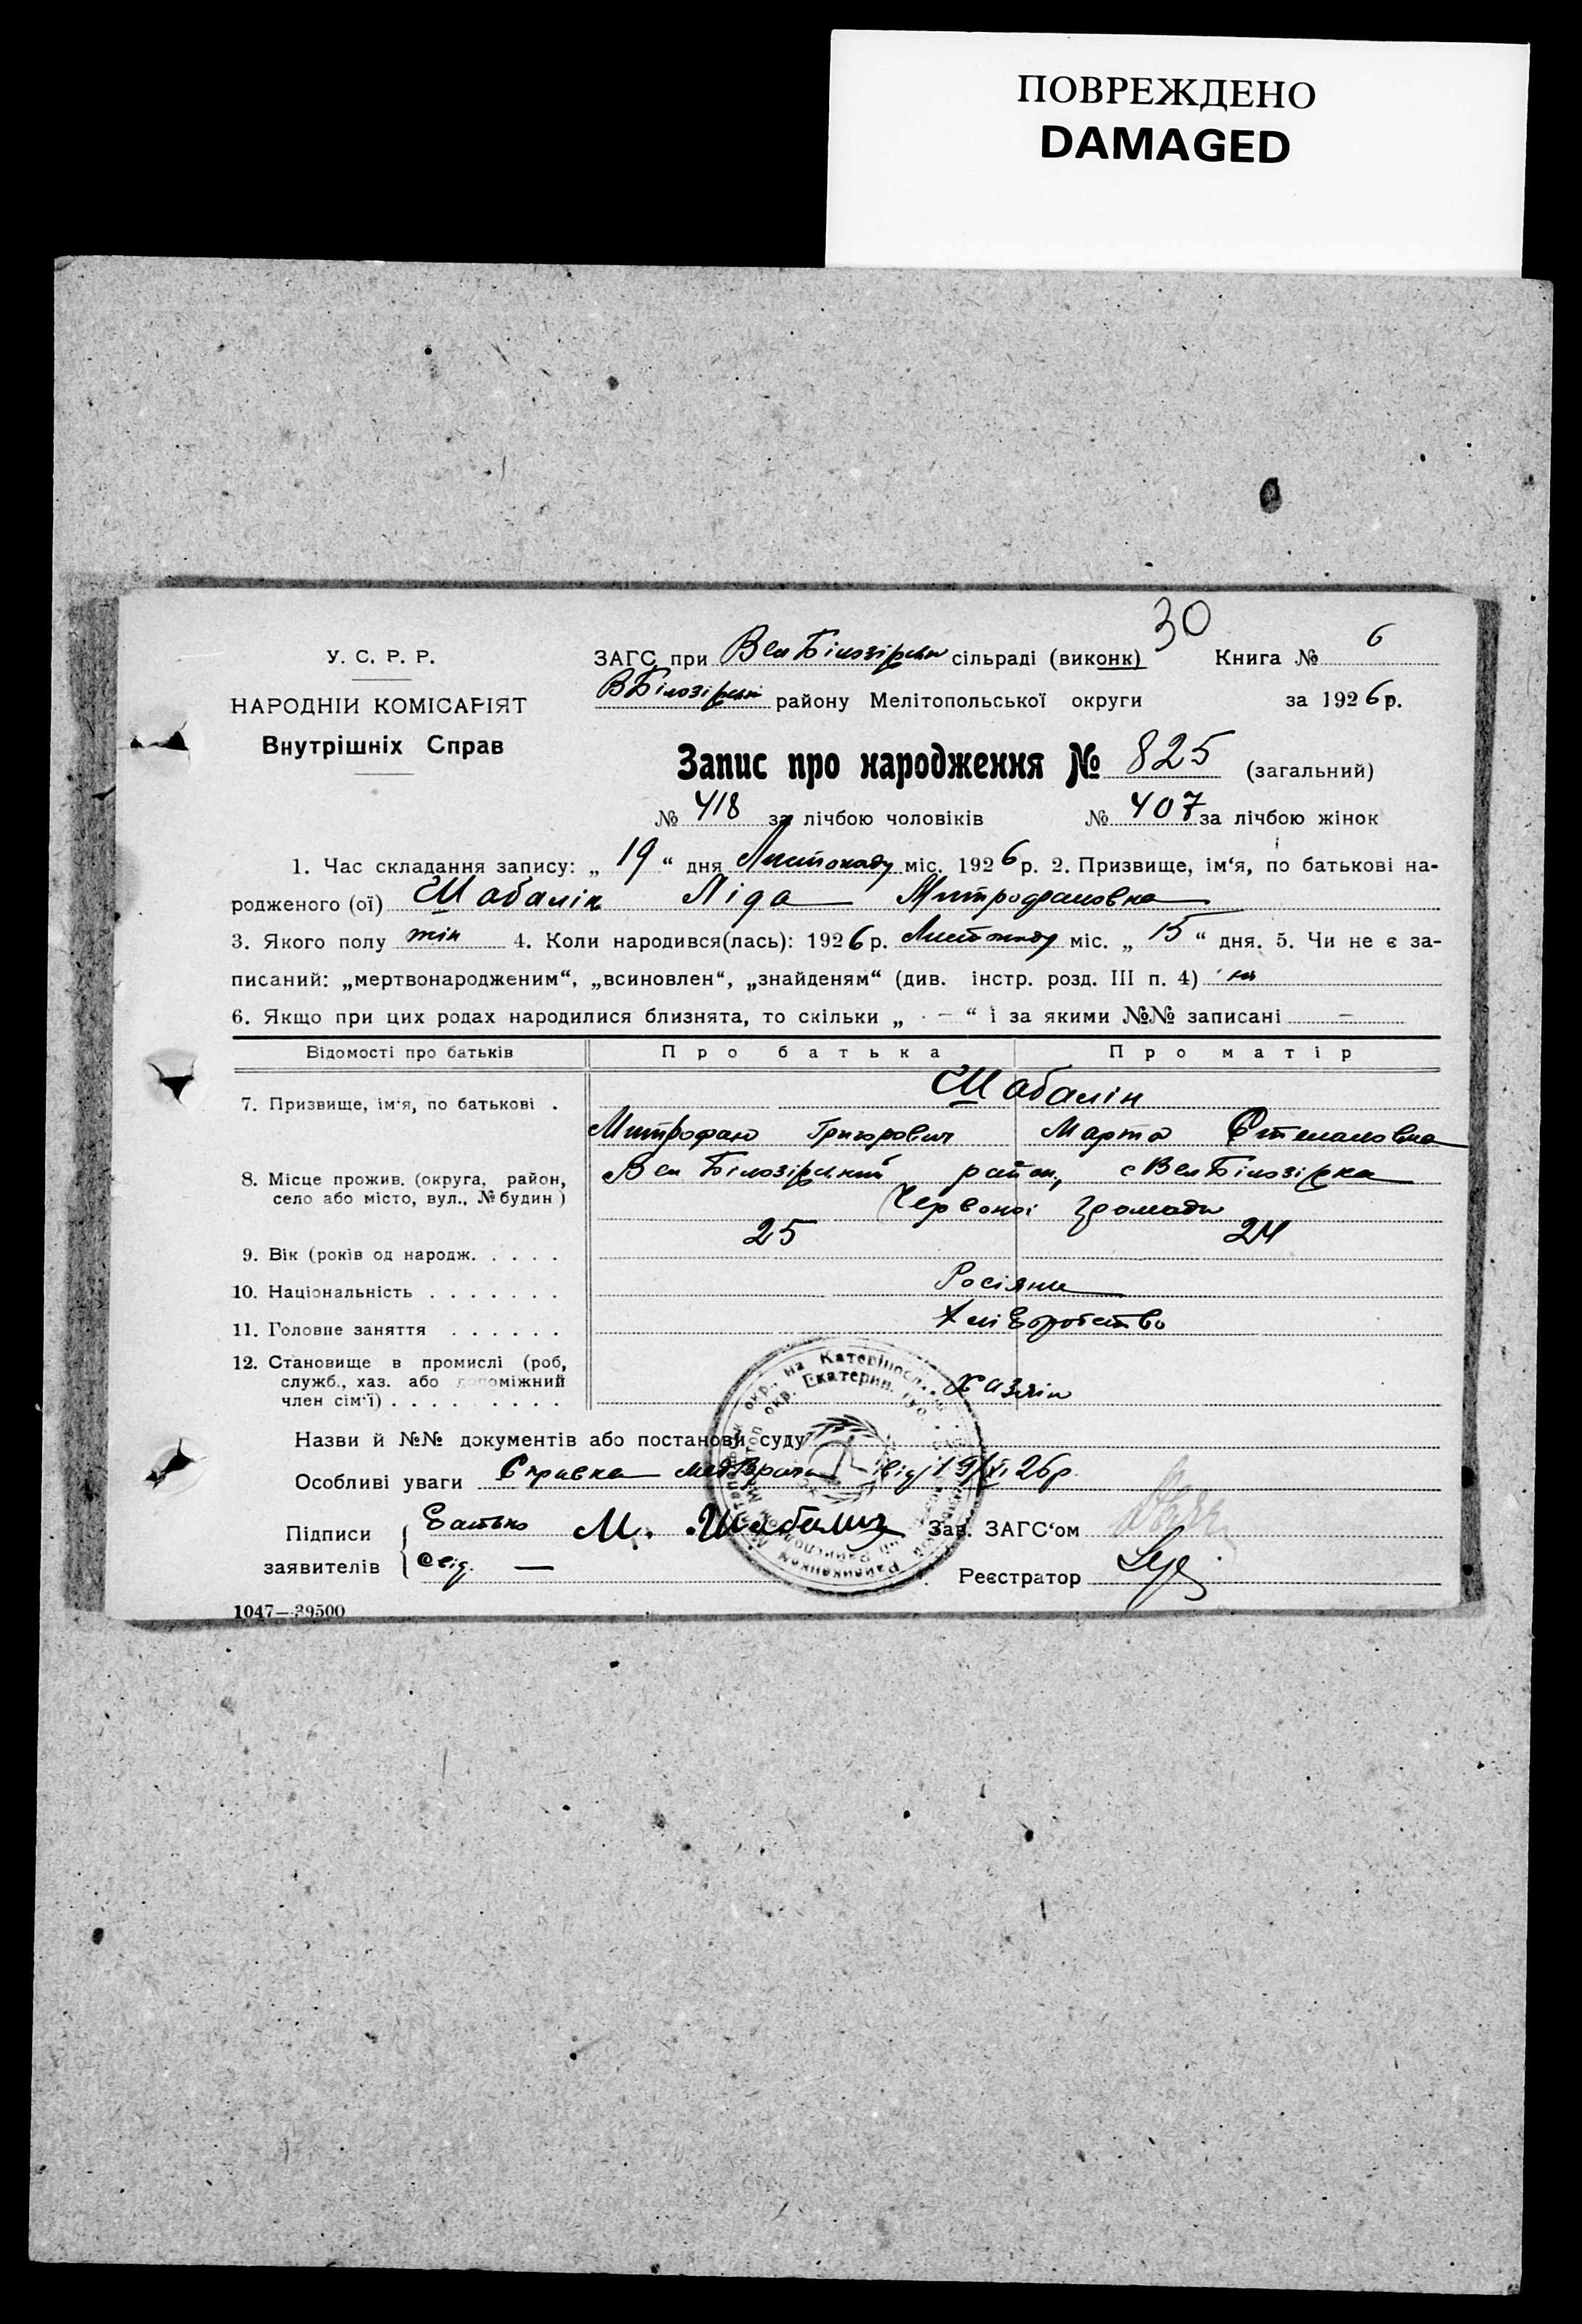 ПОВРЕЖДЕНО
DAMAGED
30
У. С. Р. Р.
НАРОДНІЙ КОМІСАРІЯТ
Внутрішніх Справ
ЗАГС при Вел Білозірськ сільраді (виконк) Книга № 6
ВБілозірськ району Мелітопольської округи за 1926 р.
Запис про народження № 825 (загальний)
№ 418 за лічбою чоловіків № 407 за лічбою жінок
1. Час складання запису: „ 19 “ дня Листопаду міс. 1926 р. 2. Призвище, ім‘я, по батькові на-
родженого (ої) Шабалін Ліда Митрофановна
3. Якого полу жін 4. Коли народився(лась): 1926 р. Листопаду міс. „ 15 “ дня. 5. Чи не є за-
писаний: „мертвонародженим“, „всиновлен“, „знайденям“ (див. інстр. розд. III п. 4)
6. Якщо при цих родах народилися близнята, то скільки „ — “ і за якими №№ записані —
Відомості про батьків Про батька Про матір
7. Призвище, ім‘я, по батькові . Шабалін
Митрофан Григорович Марта Степановна
8. Місце прожив. (округа, район, село або місто, вул., № будин ) Вел Білозірський район, с Вел Білозірка
Червоної Громади
9. Вік (років од народж. . . . . 25 24
10. Національність . . . . . . . Росіяни
11. Головне заняття . . . . . . Хліборобство
12. Становище в промислі (роб,
служб., хаз. або допоміжний
член сім‘ї) . . . . . . . . . Хазяїн
Назви й №№ документів або постанови суду
Особливі уваги Справка медврача від 19/XI 26 р.
Підписи заявителів { Батько М. Шабалин Зав. ЗАГС‘ом
Свід. — Реєстратор
1047—39500